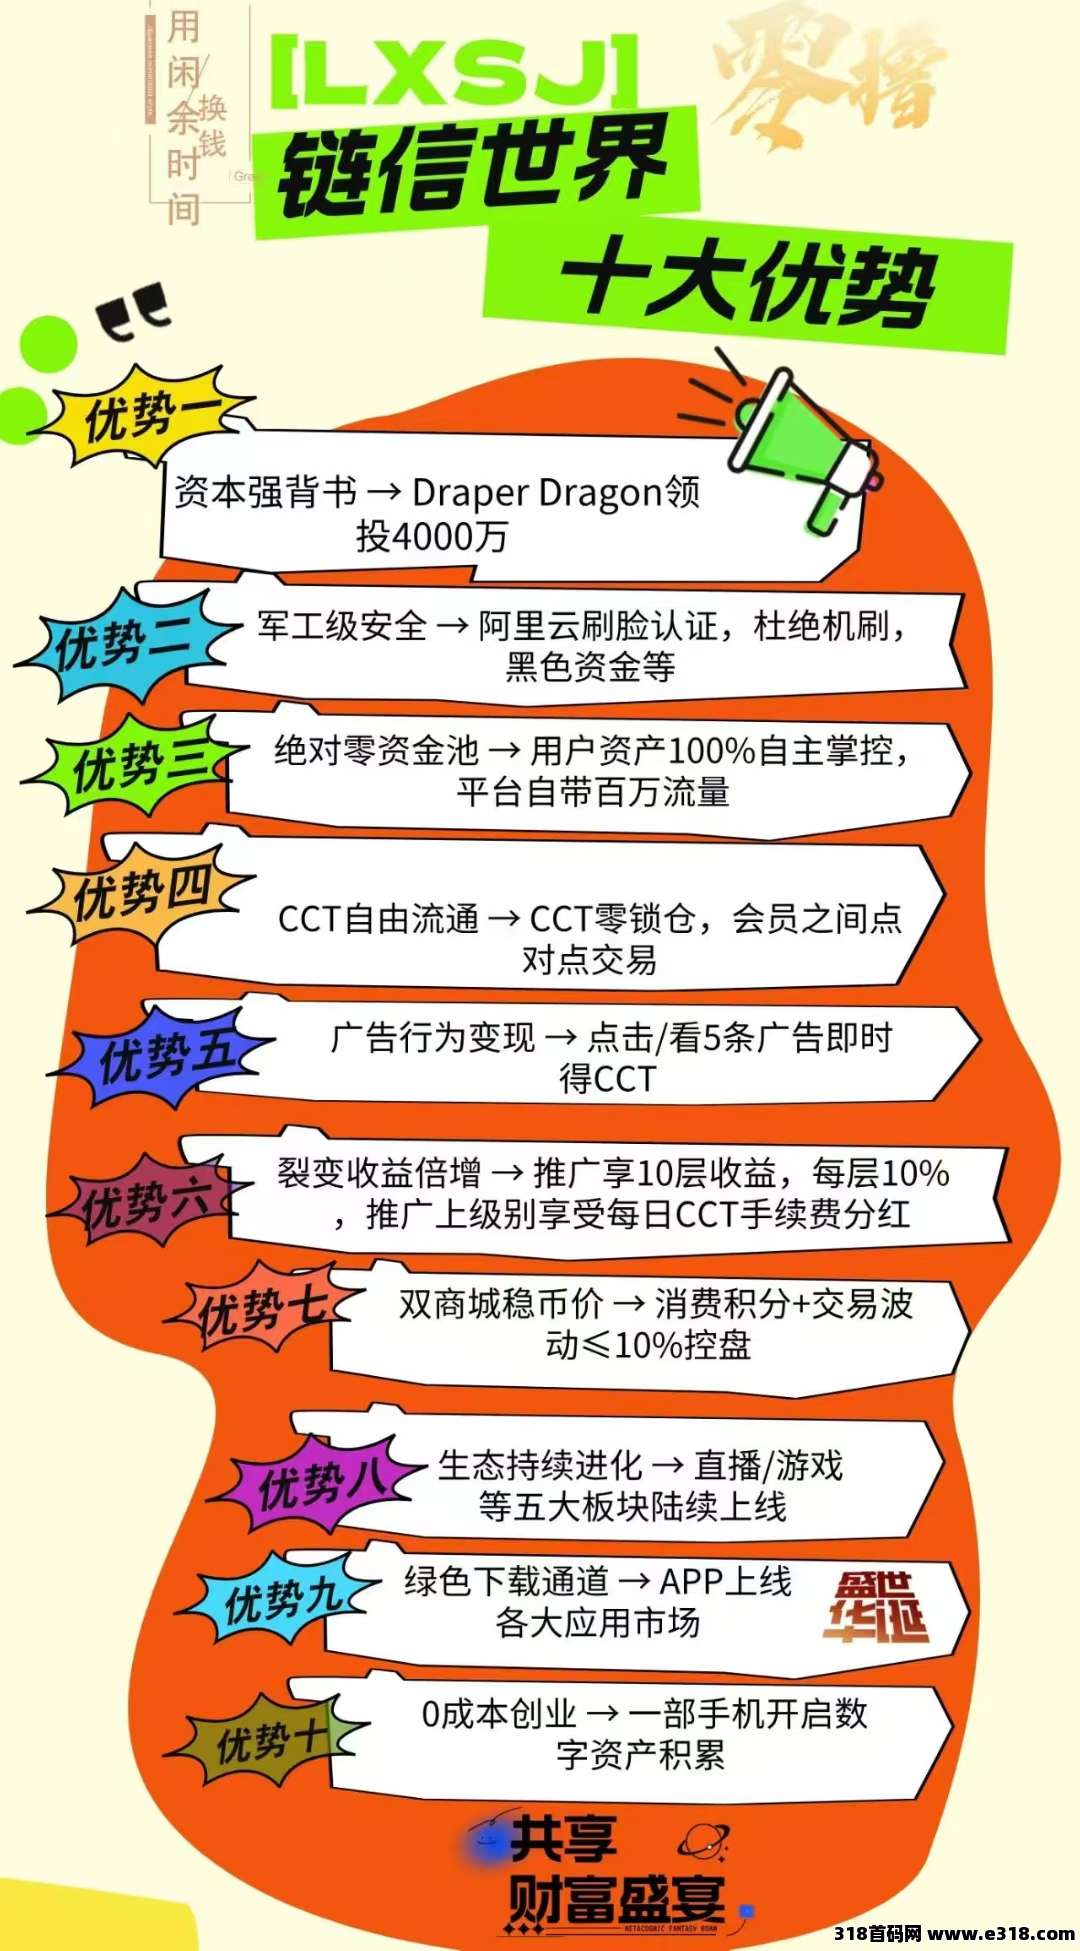 用闲余时间
换钱
Gree
[LXSJ]
零撸
链信世界
十大优势
优势一
资本强背书 → Draper Dragon领
投4000万
优势二
军工级安全 → 阿里云刷脸认证，杜绝机刷，
黑色资金等
优势三
绝对零资金池 → 用户资产100%自主掌控，
平台自带百万流量
优势四
CCT自由流通 → CCT零锁仓，会员之间点
对点交易
优势五
广告行为变现 → 点击/看5条广告即时
得CCT
优势六
裂变收益倍增 → 推广享10层收益，每层10%
，推广上级别享受每日CCT手续费分红
优势七
双商城稳币价 → 消费积分+交易波
动≤10%控盘
优势八
生态持续进化 → 直播/游戏
等五大板块陆续上线
优势九
绿色下载通道 → APP上线
各大应用市场
盛世
华诞
优势十
0成本创业 → 一部手机开启数
字资产积累
共享
财富盛宴
318首码网 www.e318.com